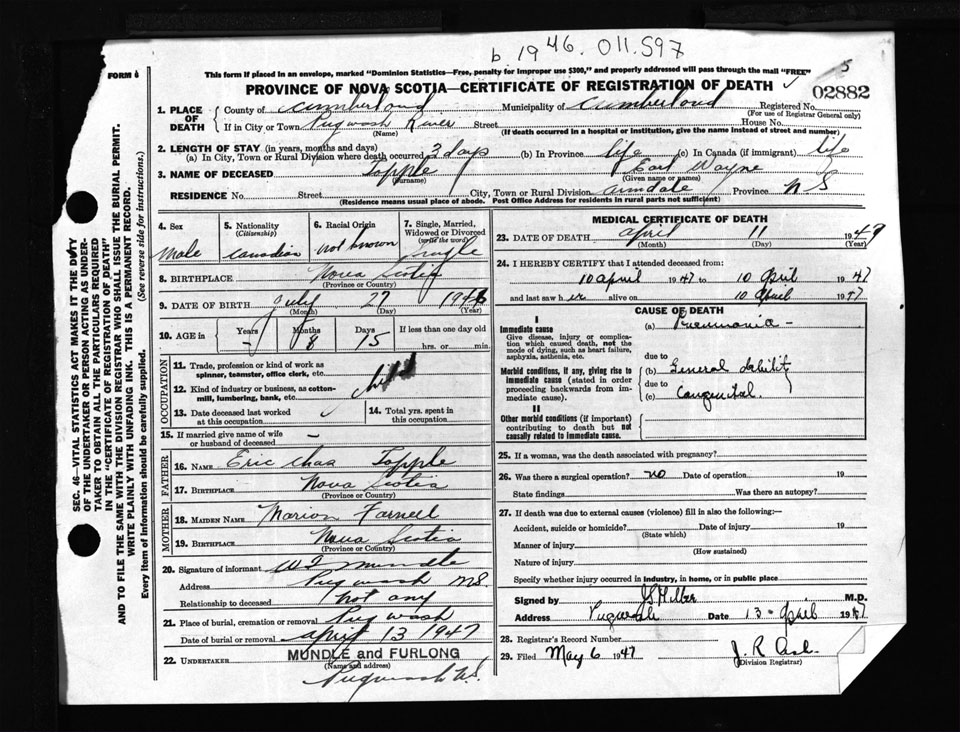 b. 1946. 011597
FORM 6
This form if placed in an envelope, marked "Dominion Statistics—Free, penalty for improper use $300," and properly addressed will pass through the mail "FREE"
5
PROVINCE OF NOVA SCOTIA—CERTIFICATE OF REGISTRATION OF DEATH
02882
1. PLACE OF DEATH
County of Cumberland Municipality of Cumberland Registered No.
(For use of Registrar General only)
If in City or Town Pugwash River Street House No.
(Name) (If death occurred in a hospital or institution, give the name instead of street and number)
2. LENGTH OF STAY (in years, months and days)
(a) In City, Town or Rural Division where death occurred 3 days (b) In Province life (c) In Canada (if immigrant) life
3. NAME OF DECEASED Topple Earl Wayne
(Surname) (Given name or names)
RESIDENCE No. Street City, Town or Rural Division Armdale Province N S
(Residence means usual place of abode. Post Office Address for residents in rural parts not sufficient)
4. Sex
male
5. Nationality
(Citizenship)
Canadian
6. Racial Origin
not known
7. Single, Married, Widowed or Divorced
(write the word)
single
8. BIRTHPLACE Nova Scotia
(Province or Country)
9. DATE OF BIRTH July 27 1946
(Month) (Day) (Year)
10. AGE in
Years Months Days If less than one day old
- 8 15 hrs. or min.
OCCUPATION
11. Trade, profession or kind of work as
spinner, teamster, office clerk, etc.
child
12. Kind of industry or business, as cotton-
mill, lumbering, bank, etc.
13. Date deceased last worked
at this occupation
14. Total yrs. spent in
this occupation
15. If married give name of wife
or husband of deceased –
FATHER
16. NAME Eric Chas Topple
17. BIRTHPLACE Nova Scotia
(Province or Country)
MOTHER
18. MAIDEN NAME Marion Farnell
19. BIRTHPLACE Nova Scotia
(Province or Country)
20. Signature of informant W F Mundle
Address Pugwash NS
Relationship to deceased not any
21. Place of burial, cremation or removal Pugwash
Date of burial or removal April 13 1947
22. UNDERTAKER MUNDLE AND FURLONG
(Name and address)
Pugwash N.S.
MEDICAL CERTIFICATE OF DEATH
23. DATE OF DEATH April 11 1947
(Month) (Day) (Year)
24. I HEREBY CERTIFY that I attended deceased from:
10 April 1947 to 10 April 1947
and last saw h im alive on 10 April 1947
CAUSE OF DEATH
I
Immediate cause
Give disease, injury or complication which caused death, not the mode of dying, such as heart failure, asphyxia, asthenia, etc.
(a) Pneumonia –
due to
Morbid conditions, if any, giving rise to immediate cause (stated in order proceeding backwards from immediate cause).
(b) General debility
due to
(c) Congenital.
II
Other morbid conditions (if important) contributing to death but not causally related to immediate cause.
25. If a woman, was the death associated with pregnancy?
26. Was there a surgical operation? no Date of operation 19
State findings Was there an autopsy?
27. If death was due to external causes (violence) fill in also the following:—
Accident, suicide or homicide? Date of injury 19
(State which)
Manner of injury
(How sustained)
Nature of injury
Specify whether injury occurred in industry, in home, or in public place
Signed by M.D.
Address Pugwash Date 13 - April 1947
28. Registrar's Record Number
29. Filed May 6 1947 J. R.
(Division Registrar)
SEC. 46—VITAL STATISTICS ACT MAKES IT THE DUTY
OF THE UNDERTAKER OR PERSON ACTING AS UNDER-
TAKER TO OBTAIN ALL THE PARTICULARS REQUIRED
IN THE "CERTIFICATE OF REGISTRATION OF DEATH"
AND TO FILE THE SAME WITH THE DIVISION REGISTRAR WHO SHALL ISSUE THE BURIAL PERMIT.
WRITE PLAINLY WITH UNFADING INK. THIS IS A PERMANENT RECORD.
Every item of information should be carefully supplied. (See reverse side for instructions.)